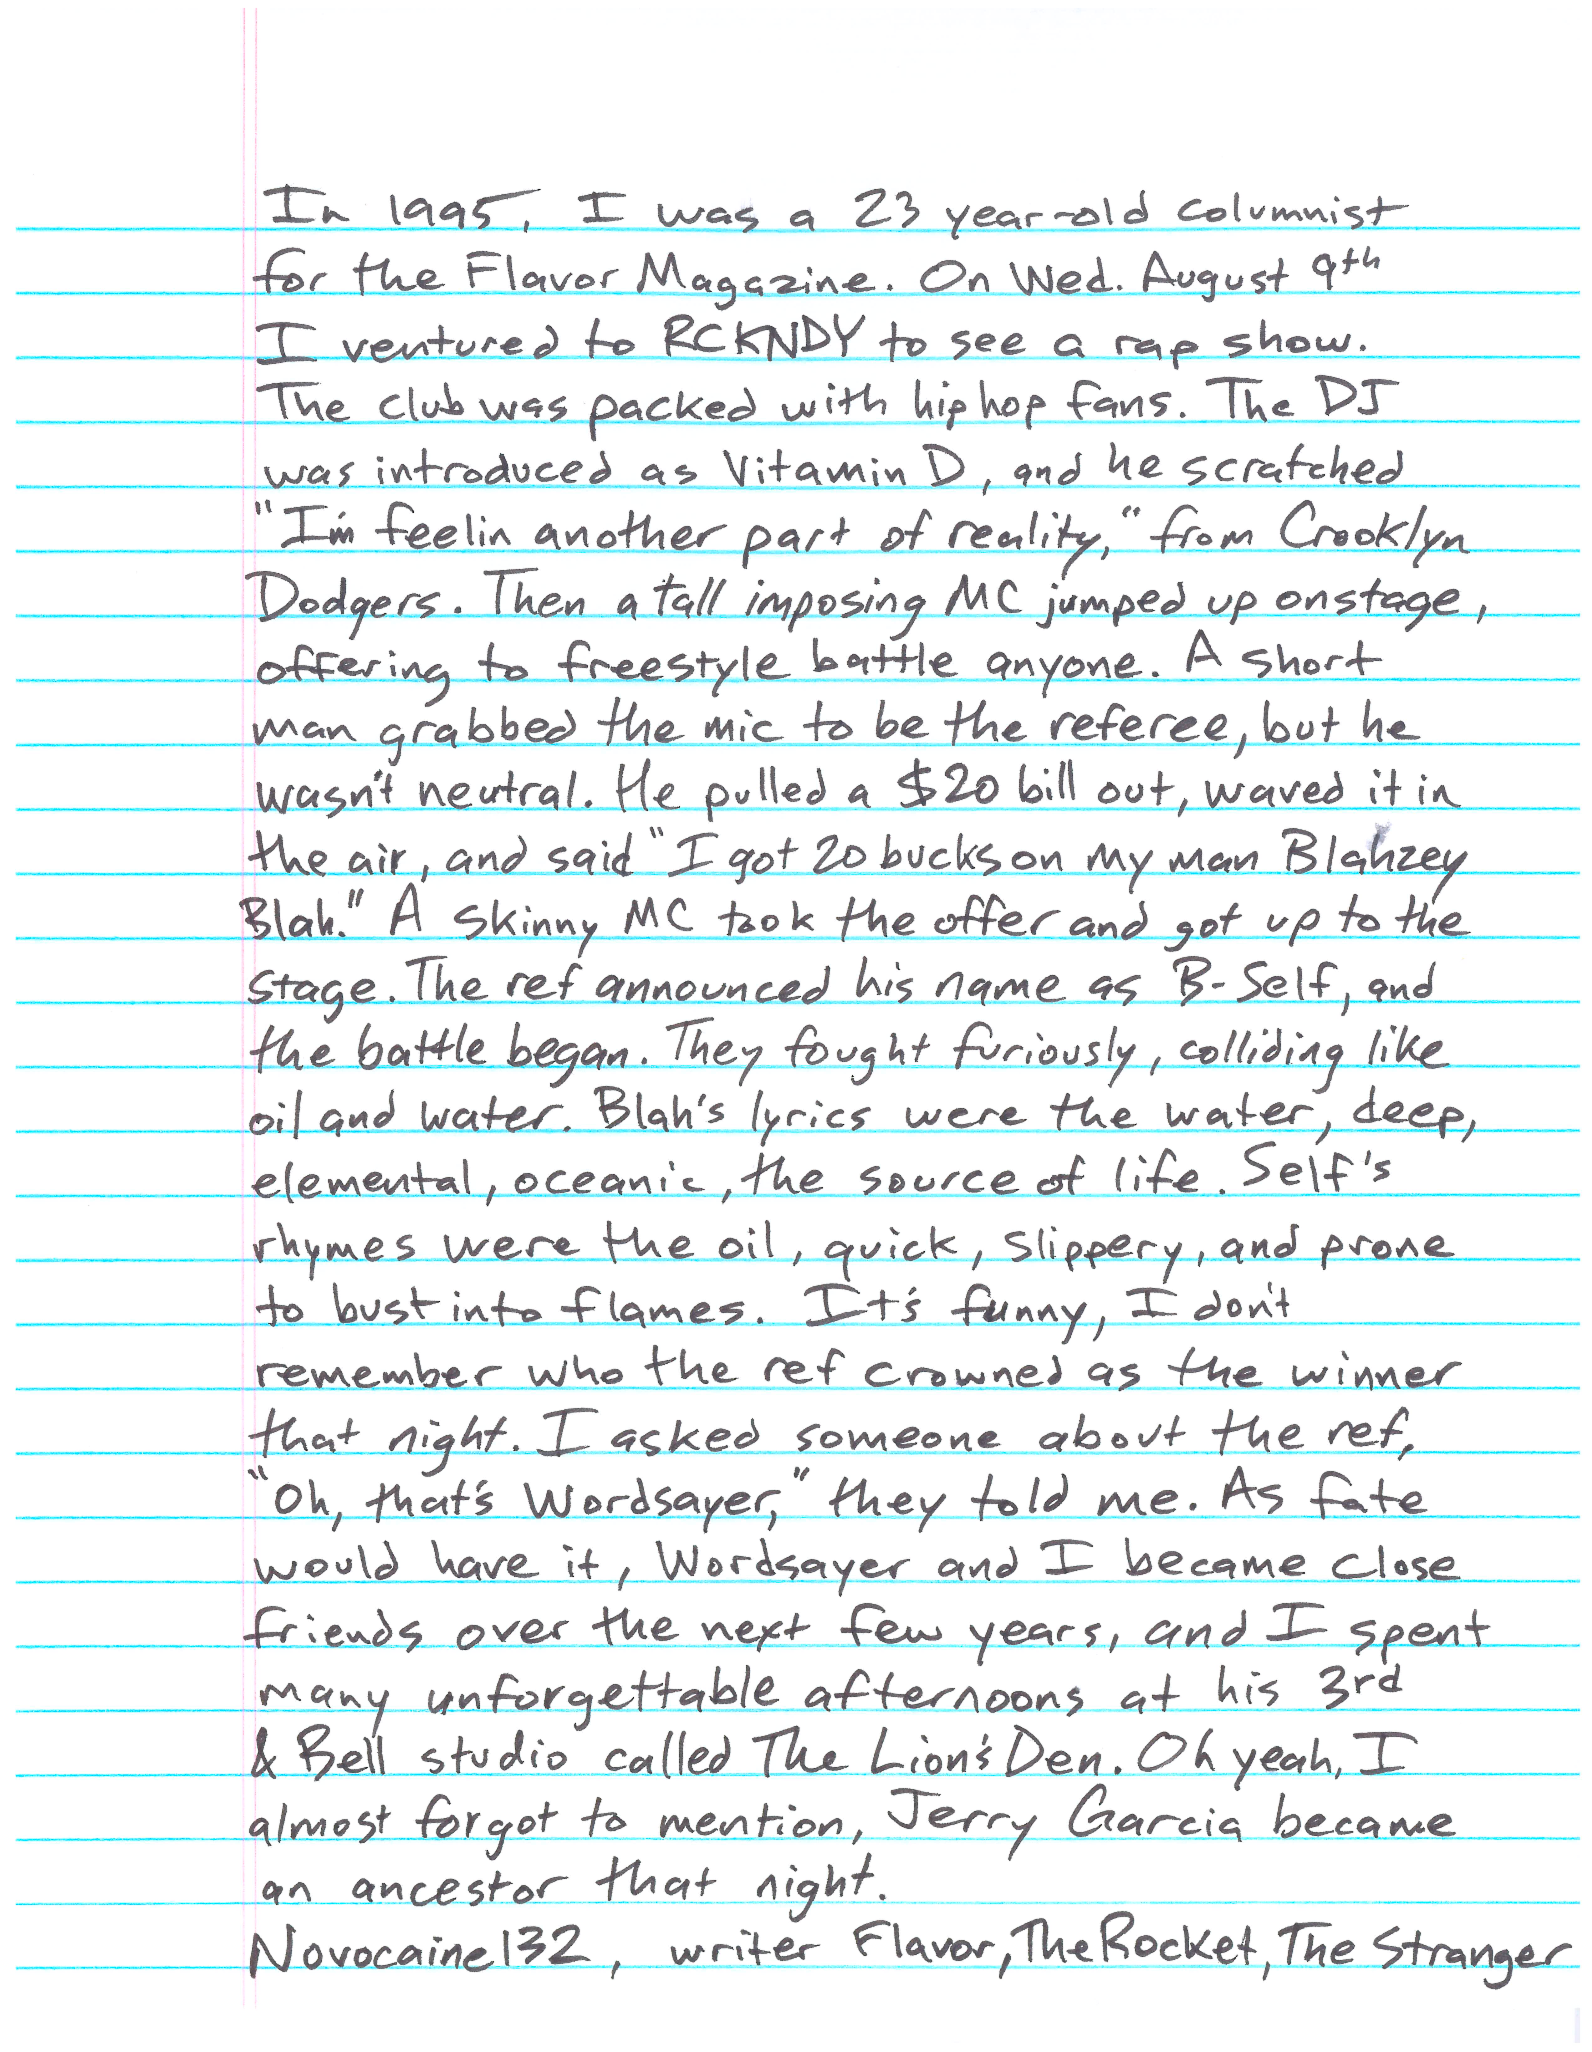 In 1995, I was a 23 year-old columnist
for the Flavor Magazine. On Wed. August 9th
I ventured to RCKNDY to see a rap show.
The club was packed with hip hop fans. The DJ
was introduced as Vitamin D, and he scratched
"I'm feelin another part of reality," from Crooklyn
Dodgers. Then a tall imposing MC jumped up onstage,
offering to freestyle battle anyone. A short
man grabbed the mic to be the referee, but he
wasn't neutral. He pulled a $20 bill out, waved it in
the air, and said "I got 20 bucks on my man Blahzey
Blah." A skinny MC took the offer and got up to the
stage. The ref announced his name as B-Self, and
the battle began. They fought furiously, colliding like
oil and water. Blah's lyrics were the water, deep,
elemental, oceanic, the source of life. Self's
rhymes were the oil, quick, slippery, and prone
to bust into flames. It's funny, I don't
remember who the ref crowned as the winner
that night. I asked someone about the ref,
"Oh, that's Wordsayer," they told me. As fate
would have it, Wordsayer and I became close
friends over the next few years, and I spent
many unforgettable afternoons at his 3rd
& Bell studio called The Lion's Den. Oh yeah, I
almost forgot to mention, Jerry Garcia became
an ancestor that night.
Novocaine132, writer Flavor, The Rocket, The Stranger